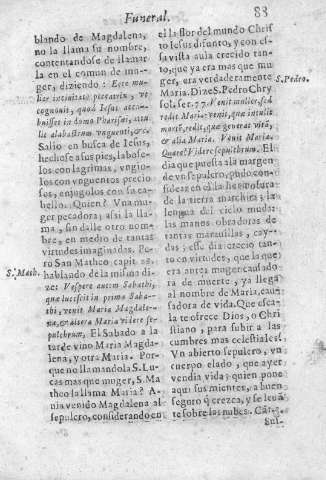 Funeral. 83
blando de Magdalena,
no la llama su nombre,
contentandose de llamarla
en el comun de muger,
diziendo: Ecce mulier
in civitate peccatrix, ut
cognouit, quod Iesus accubuisset
in domo Pharisæi, attulit
alabastrum vnguenti, &c.
Salio en busca de Iesus,
hechose a sus pies, labolos
con lagrimas, vngiolos
con vnguentos preciosos,
enjugolos con su cabello.
Quien? Vna muger
pecadora; assi la llama,
sin darle otro nombre,
en medio de tantas
virtudes imaginadas. Pero
San Matheo capit. 28.
S. Math.
hablando de la misma dize:
Vespere autem Sabathi,
quæ lucescit in prima Sabathi,
venit Maria Magdalena,
& altera Maria videre sepulchrum.
El Sabado a la
tarde vino Maria Magdalena,
y otra Maria. Porque
no llamandola S. Lucas
mas que muger, S. Matheo
la llama Maria? A
nia venido Magdalena al
sepulcro, considerando en
el la flor del mundo Christo
Iesus difunto, y con essa
vista auia crecido tanto,
que ya era mas que muger,
era verdaderamente
S. Pedro.
Maria. Dize S. Pedro Chrysol.
ser. 77. Venit mulier, sed
redit Maria: venit, quæ intulit
mortem, redit, quæ generat vitã,
& alia Maria. Venit Maria.
Quare? Videre sepulchrum. El
dia que puesta a la margen
de vn sepulcro, pudo considerar
en el la hermosura
de la tierra marchita; la
lengua del cielo muda;
las manos obradoras de
tantas marauillas, caydas;
esse dia crecio tanto
en virtudes, que la que
era antes muger causadora
de muerte, ya llega
al nombre de Maria, causadora
de vida. Que escala
te ofrece Dios, o Christiano,
para subir a las
cumbres mas celestiales!
Vn abierto sepulcro, vn
cuerpo elado, que ayer
vendia vida; quien pone
aqui sus mientes, a buen
seguro q̃ crezca, y se leuante
sobre las nubes. Cãt. 3.
Sur-